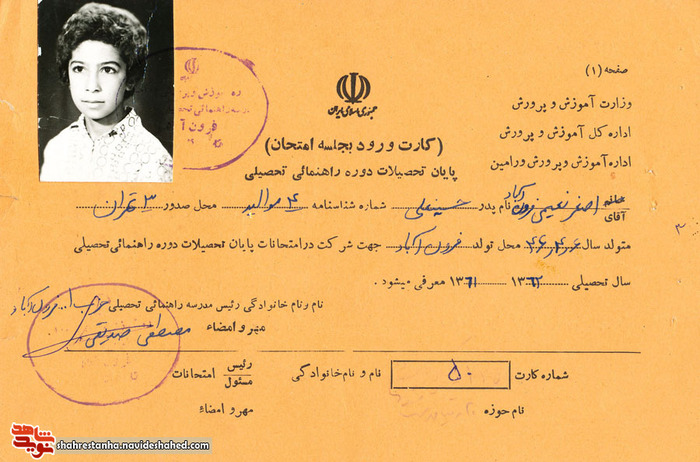 صفحه (۱)
جمهوری اسلامی ایران
وزارت آموزش و پرورش
اداره کل آموزش و پرورش
اداره آموزش و پرورش ورامین
(کارت ورود بجلسه امتحان)
پایان تحصیلات دوره راهنمائی تحصیلی
خانم آقای اصغر نعیمی فرون آباد نام پدر حسینعلی شماره شناسنامه ۴ موالید محل صدور ۳ تهران
متولد سال محل تولد فرون آباد جهت شرکت در امتحانات پایان تحصیلات دوره راهنمائی تحصیلی
سال تحصیلی ۱۳۶۲ ۱۳۶۱ معرفی میشود.
نام و نام خانوادگی رئیس مدرسه راهنمائی تحصیلی فرون آباد
مهر و امضاء مصطفی صدوقی
شماره کارت ۵۰ نام و نام خانوادگی رئیس مسئول امتحانات
نام حوزه مهر و امضاء
نوید شاهد
shahrestanha.navideshahed.com